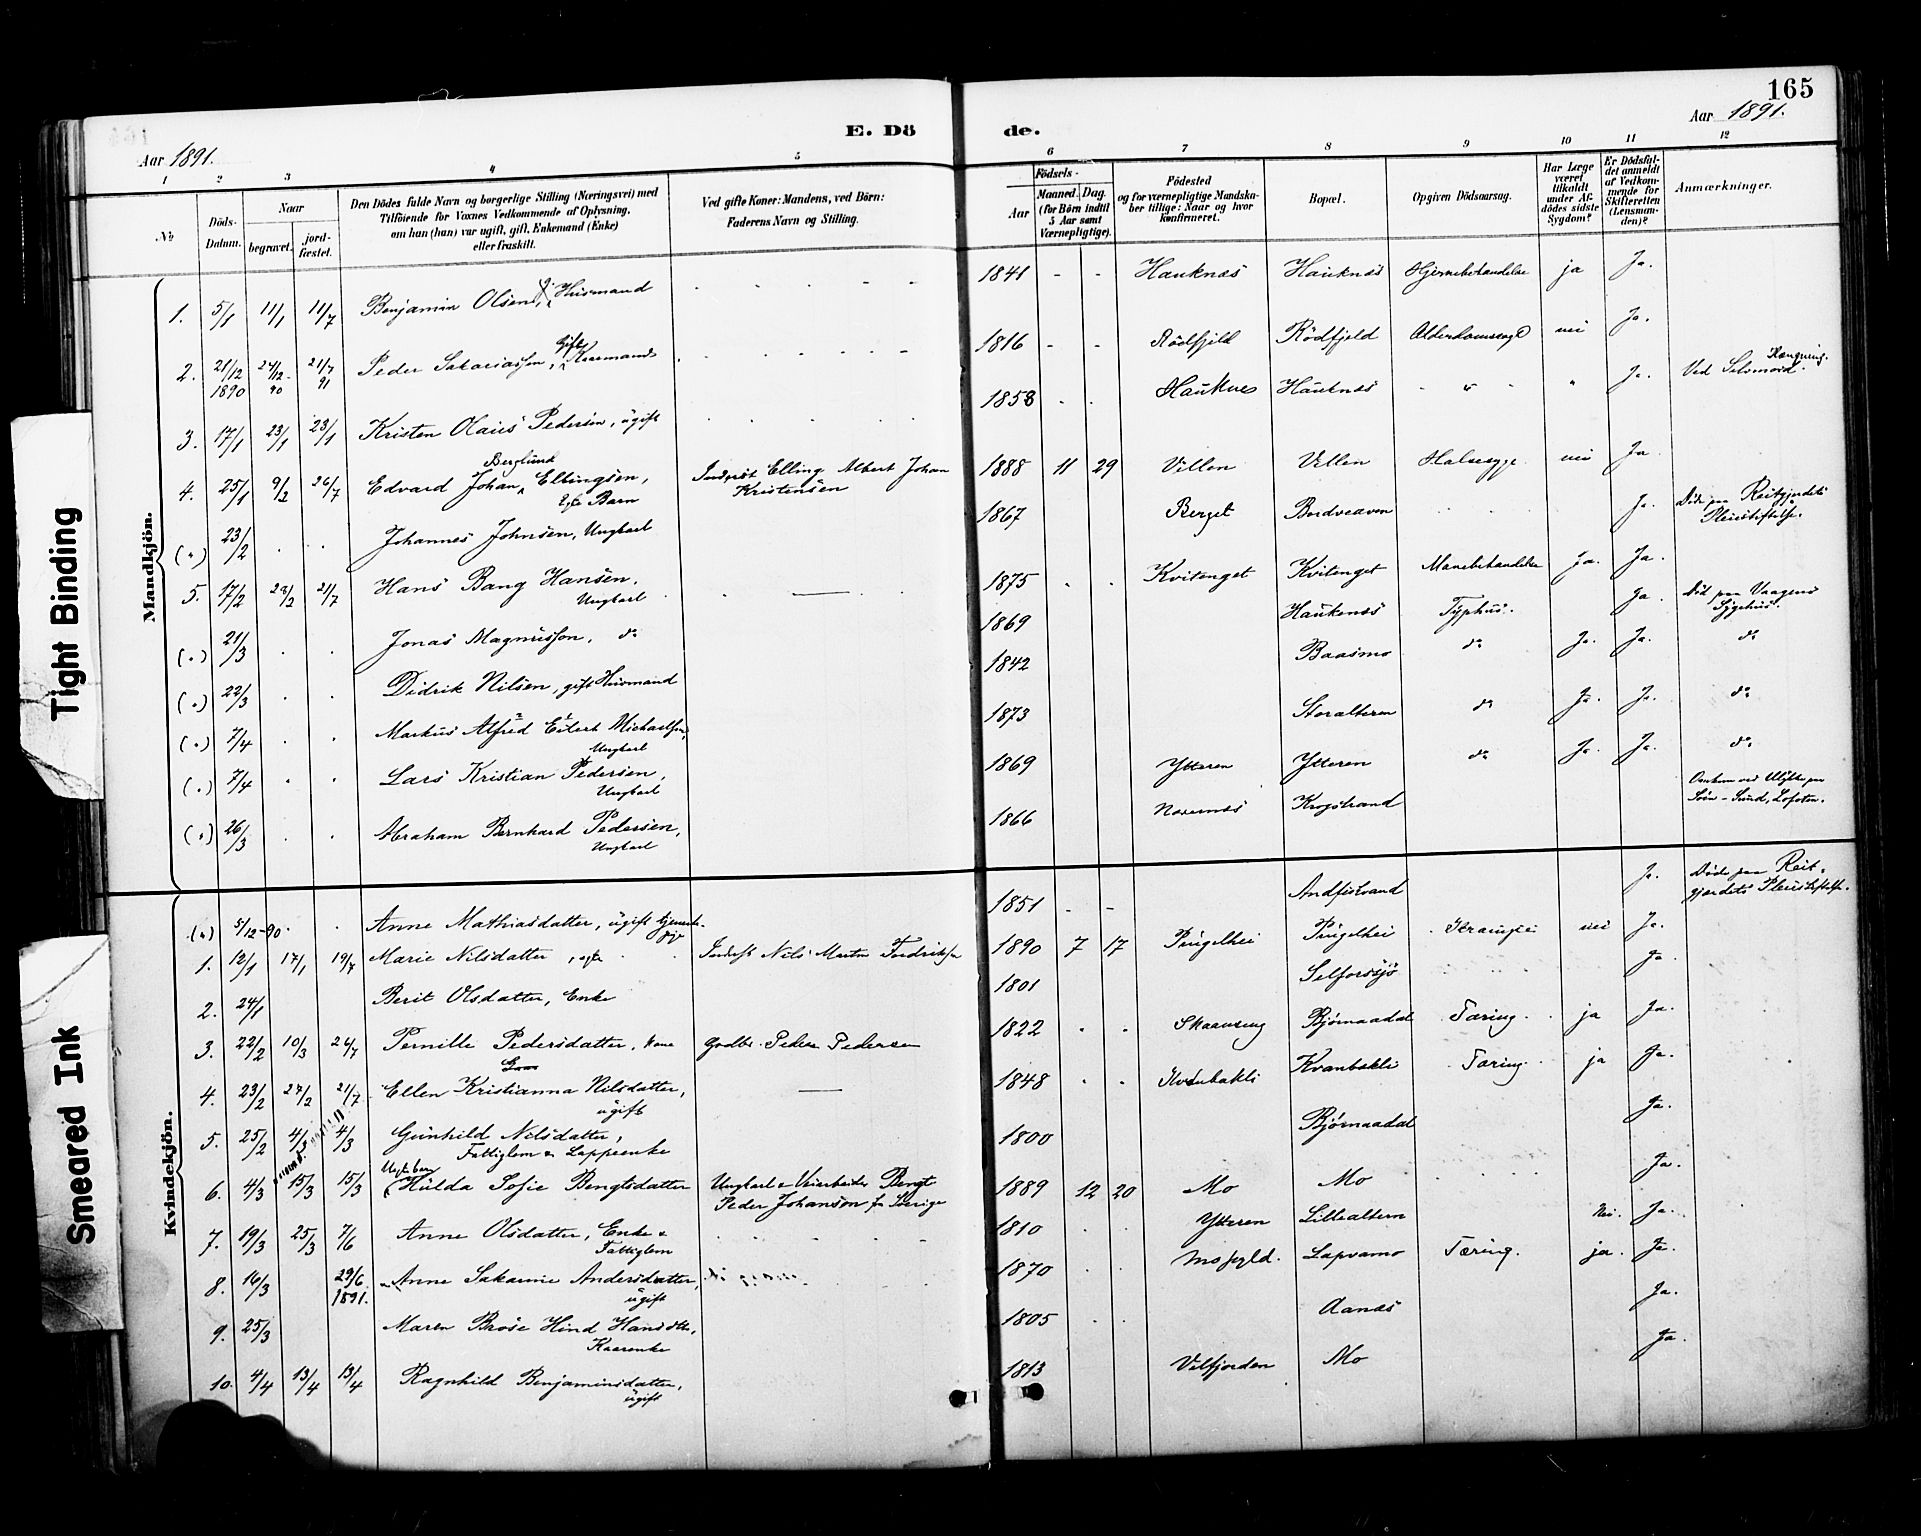 165
E. Döde.
Aar 1891.
Aar 1891.
1 2 3 4 5 6 7 8 9 10 11 12
No
Döds-Datum.
Naar
begravet.
jordfæstet.
Den Dödes fulde Navn og borgerlige Stilling (Næringsvei) med
Tilföiende for Voxnes Vedkommende af Oplysning,
om han (hun) var ugift, gift, Enkemand (Enke)
eller fraskilt.
Ved gifte Koner: Mandens, ved Börn:
Faderens Navn og Stilling.
Födsels-
Aar
Maaned. Dag.
(for Börn indtil
5 Aar samt
Værnepligtige).
Födested
og for værnepligtige Mandskaber tillige: Naar og hvor
konfirmeret.
Bopæl.
Opgiven Dödsaarsag.
Har Læge
været
tilkaldt
under Afdödes sidste
Sygdom?
Er Dödsfaldet anmeldt
af Vedkommende for
Skifteretten
(Lensmanden)?
Anmærkninger.
Mandkjön.
1. 5/1 11/1 11/7 Benjamin Olsen, Husmand 1841 - - Hauknæs Hauknæs Hjernebetændelse ja Ja.
2. 21/12 1890 24/12 90 21/7 91 Peder Sakariassen, Gift Kaarmand 1816 - - Rödfjeld Rödfjeld Alderdomssvagd nei Ja.
3. 17/1 23/1 23/1 Kristen Olaus Pedersen, ugift 1858 Hauknes Hauknæs Ja. Ved Selvmord. Hængning.
4. 25/1 9/2 26/7 Edvard Johan Berglund Ellingsen, Egte Barn Indsst Elling Albert Johan Kristensen 1888 11 29 Villen Villen Halsesyge nei Ja
(") 23/2 Johannes Johnsen, Ungkarl 1867 Berget Ja. Död paa Reitgjerdets Pleiestiftelse.
5. 17/2 23/2 21/7 Hans Bang Hansen, Ungkarl 1875 Kvitenget Kvitenget Mavebetændelse Ja. Ja.
(") 21/3 Jonas Magnussøn, do 1869 Haukenæs Typhus. Ja. Död paa Vaagens Sygehus.
(") 22/3 Didrik Nilsen, gift Husmand 1842 Baasmo do Ja. Ja. do
(") 7/4 Markus Alfred Eilert Michaelsen, Ungkarl 1873 Storalteren do Ja. Ja. do
(") 7/4 Lars Kristian Pedersen, Ungkarl 1869 Ytteren Ytteren do Ja. Ja. do
(") 26/3 Abraham Bernhard Pedersen, Ungkarl 1866 Krogstrand Omkom ved Ulykke paa Söen - Sund, Lofoten.
Kvindekjön.
(") 5/12-90 Anne Mathiasdatter, ugift tjenestepige 1851 - - Andfiskvand Ja. Död paa Reitgjerdets Pleiestiftelse.
1. 12/1 17/1 19/7 Marie Nilsdatter, egte Inderst Nils Martin Fredriksen 1890 7 17 Pingelhei Pingelhei nei Ja.
2. 24/1 Berit Olsdatter, Enke 1801 Selforssjö Ja.
3. 22/2 10/3 26/7 Pernille Pedersdatter, Kone Gaardbr. Peder Pedersen 1822 Skaanseng Bjørnaadal Tæring. ja Ja.
4. 23/2 27/2 21/7 Ellen Kristianna Nilsdatter, ugift 1848 Kvanbakli Kvanbakli Tæring. ja Ja.
5. 25/2 4/3 4/3 Gunhild Nilsdatter, Fattiglem & Lappeenke 1800 Bjørnaadal Ja.
6. 4/3 15/3 15/3 Uægte barn Hulda Sofie Bengtsdatter Ungkarl & Veiarbeider Bengt Peder Johanson fr Sverige 1889 12 20 Mo Mo Ja.
7. 19/3 25/3 7/6 Anne Olsdatter, Enke & Fattiglem 1810 Ytteren Lillealtern Nei. Ja.
8. 16/3 29/6 1891. Anne Sakarine Andersdatter, ugift 1870 Mofjeld. Lapvamo Tæring. ja. Ja.
9. 25/3 Maren Brose Hind Hansdtr, Kaarenke 1805 Aanæs Ja.
10. 4/4 13/4 13/4 Ragnhild Benjaminsdatter, ugift 1813 Velfjorden Mo Ja.
Tight Binding
Smeared Ink